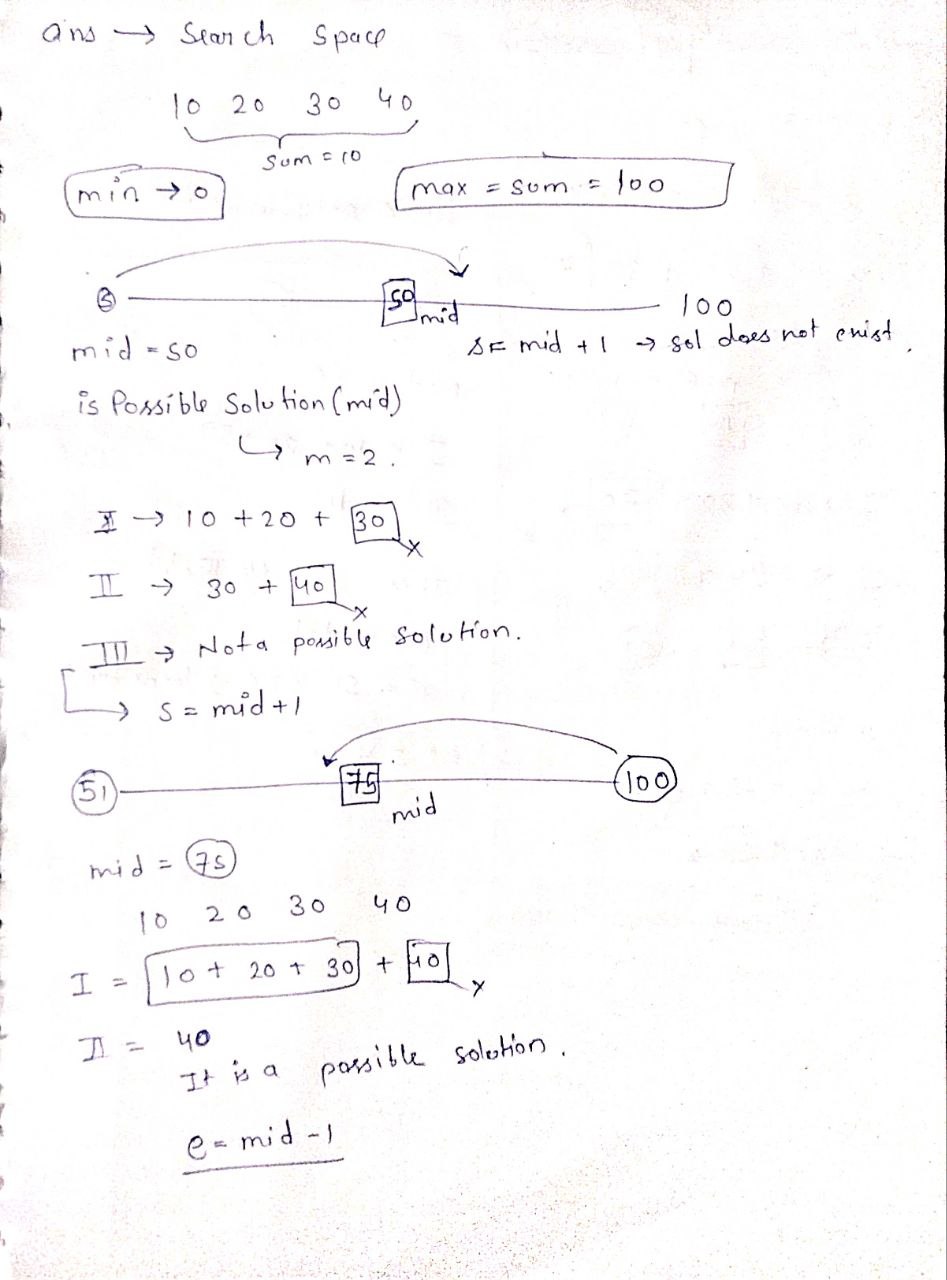 ans → Search Space
10 20 30 40
sum = 10
min → 0
max = sum = 100
50
100
mid
s = mid + 1 → sol does not exist.
mid = 50
is Possible Solution (mid)
↳ m = 2.
I → 10 + 20 + 30 x
II → 30 + 40 x
III → Not a possible solution.
→ s = mid + 1
51 75 100
mid
mid = 75
10 20 30 40
I = 10 + 20 + 30 + 40 x
II = 40
It is a possible solution.
e = mid - 1